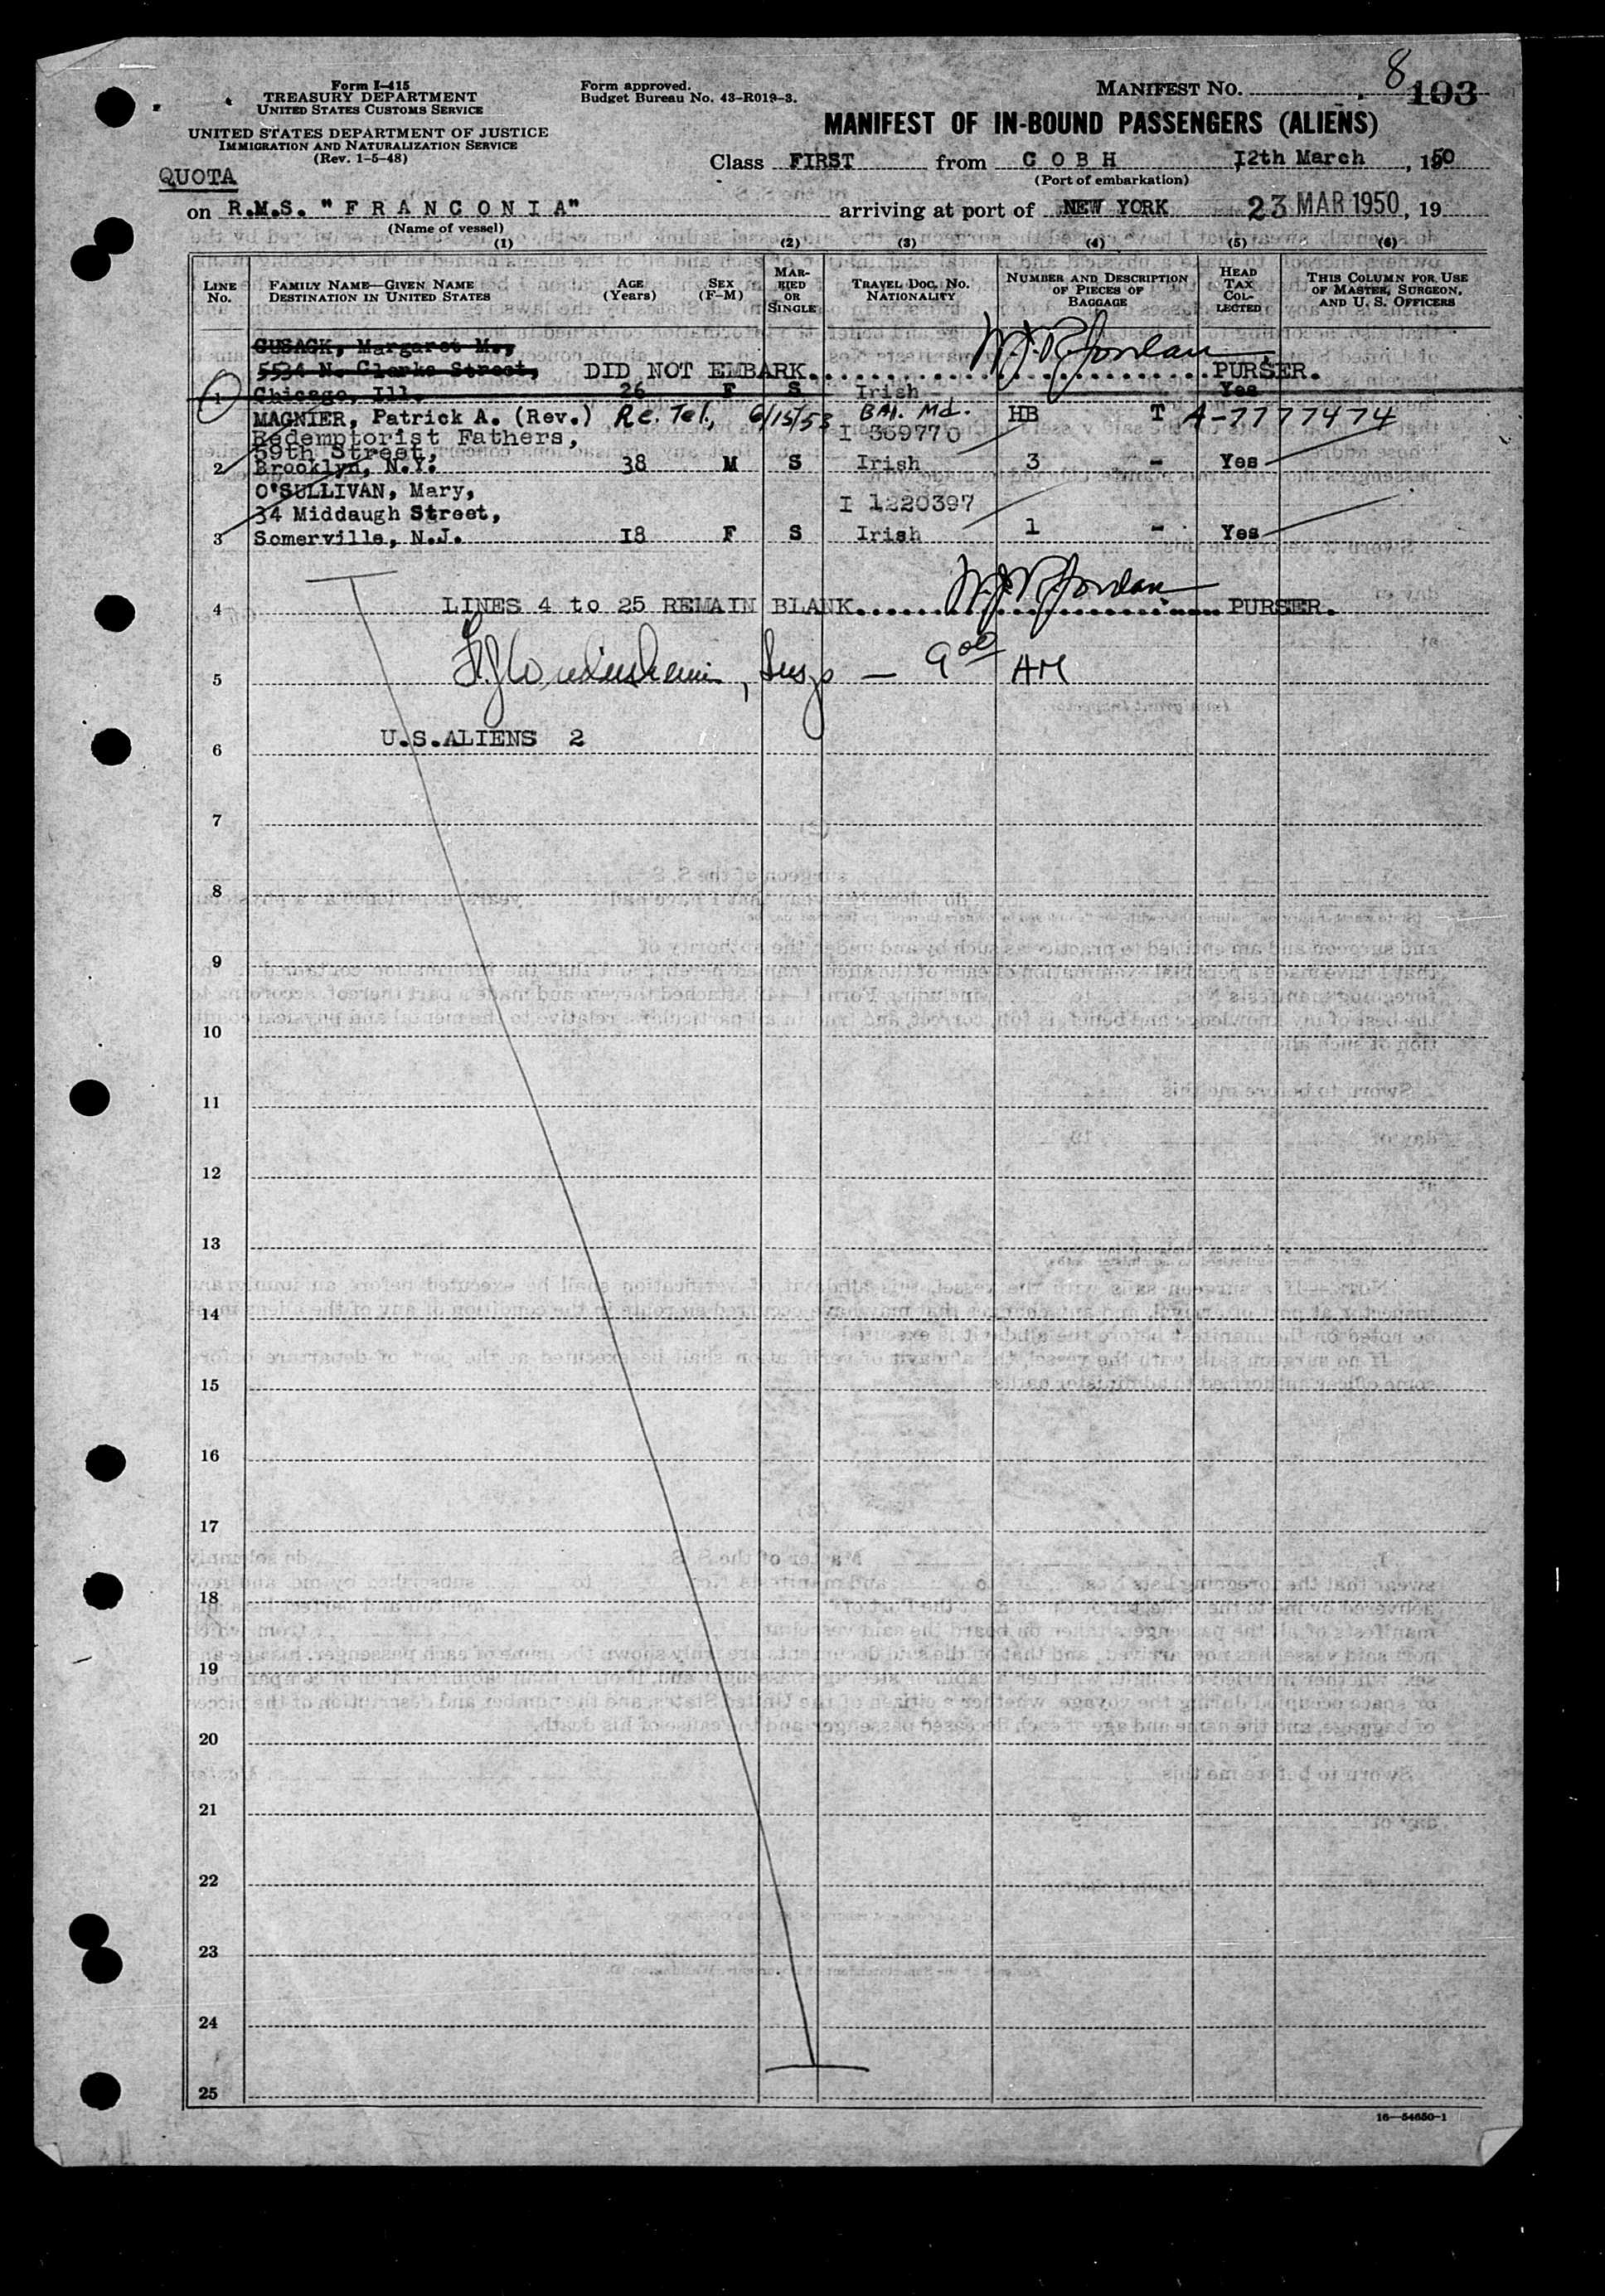 8
Form I-415
TREASURY DEPARTMENT
UNITED STATES CUSTOMS SERVICE
Form approved.
Budget Bureau No. 43-R019-3.
MANIFEST NO. 103
UNITED STATES DEPARTMENT OF JUSTICE
IMMIGRATION AND NATURALIZATION SERVICE
(Rev. 1-5-48)
MANIFEST OF IN-BOUND PASSENGERS (ALIENS)
QUOTA
Class FIRST from C O B H 12th March, 1950
(Port of embarkation)
on R.M.S. "F R A N C O N I A" arriving at port of NEW YORK 23 MAR 1950, 19
(Name of vessel)
(1) (2) (3) (4) (5) (6)
LINE No. FAMILY NAME—GIVEN NAME DESTINATION IN UNITED STATES AGE (Years) SEX (F-M) MARRIED OR SINGLE TRAVEL DOC. NO. NATIONALITY NUMBER AND DESCRIPTION OF PIECES OF BAGGAGE HEAD TAX COLLECTED THIS COLUMN FOR USE OF MASTER, SURGEON, AND U. S. OFFICERS
CUSACK, Margaret M.,
5534 N. Clarke Street, DID NOT EMBARK. PURSER.
1 Chicago, Ill. 26 F S Irish Yes
MAGNIER, Patrick A. (Rev.) Re. Tel., 6/15/53 Bal. Md. HB T A-7777474
Redemptorist Fathers, I 369770
59th Street,
2 Brooklyn, N.Y. 38 M S Irish 3 - Yes
O'SULLIVAN, Mary,
34 Middaugh Street, I 1220397
3 Somerville, N.J. 18 F S Irish 1 - Yes
4 LINES 4 to 25 REMAIN BLANK. PURSER.
5 — 9 00 AM
6 U.S.ALIENS 2
7
8
9
10
11
12
13
14
15
16
17
18
19
20
21
22
23
24
25
16—54650-1